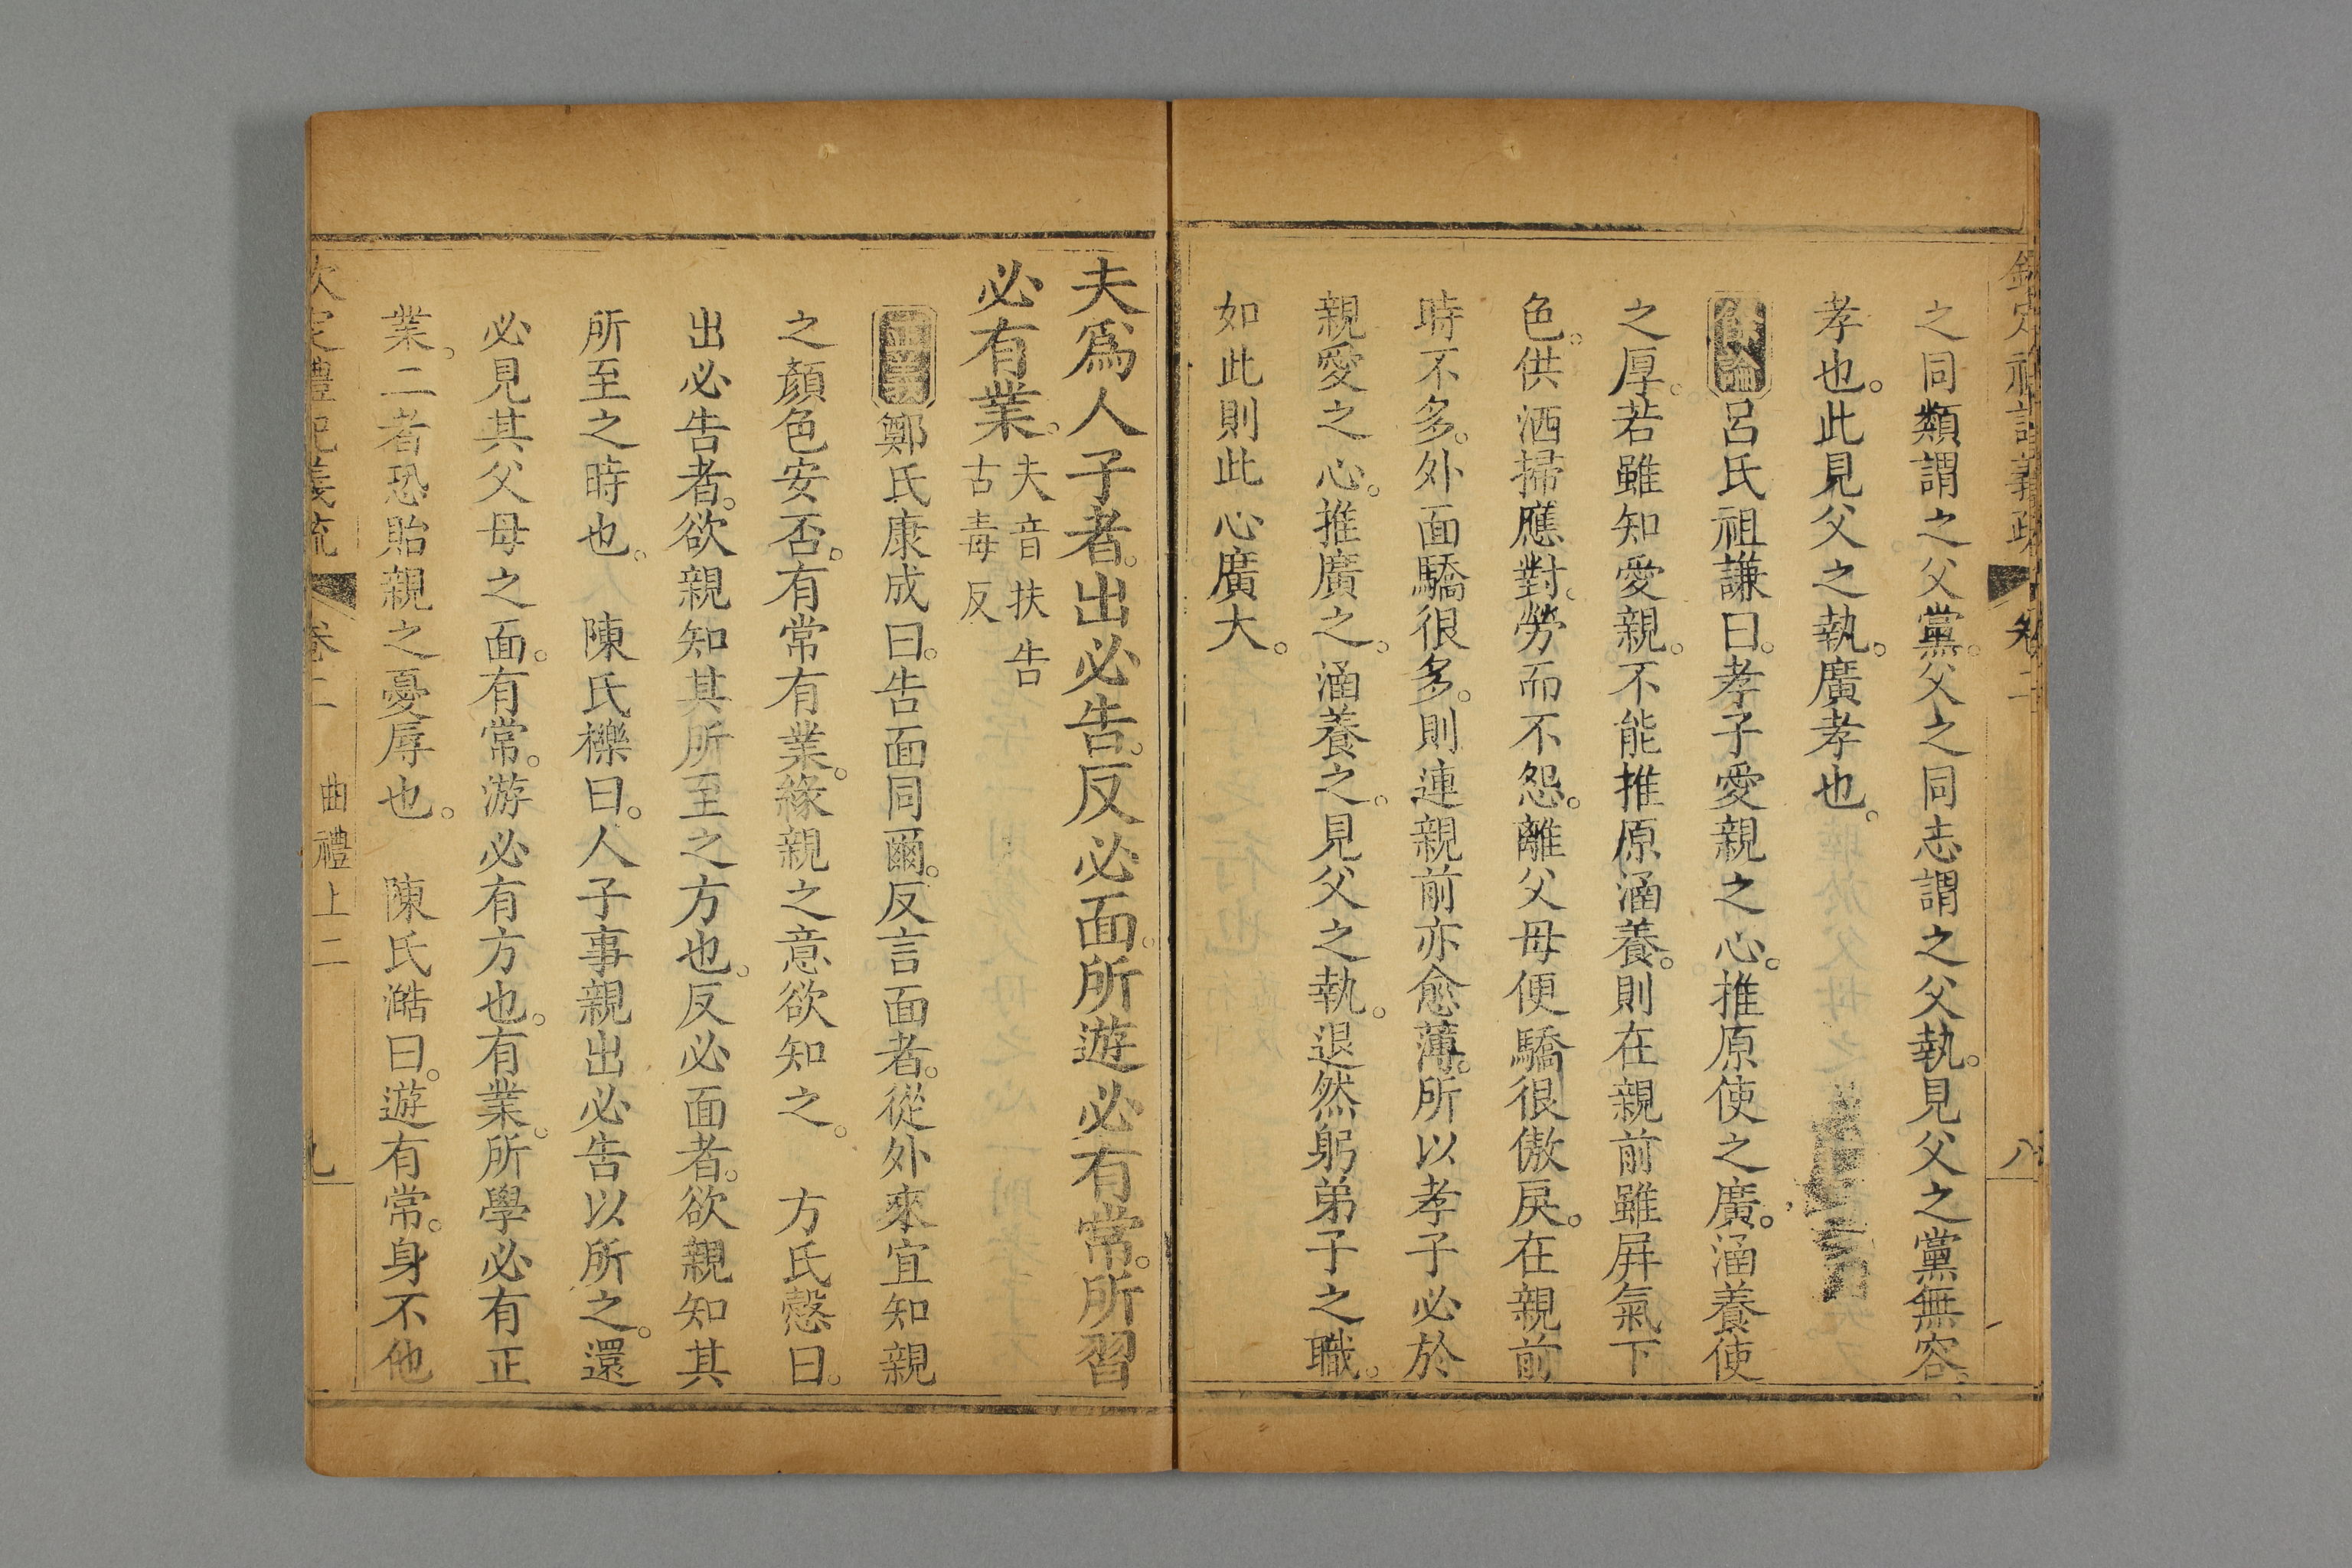 之同類謂之父黨。父之同志謂之父執。見父之黨無容。
孝也。此見父之執。廣孝也。
論呂氏祖謙曰。孝子愛親之心。推原使之廣。涵養使
之厚。若雖知愛親。不能推原涵養。則在親前雖屏氣下
色。供洒掃應對。勞而不怨。離父母便驕很傲戾。在親前
時不多。外面驕很多。則連親前亦愈薄。所以孝子必於
親愛之心。推廣之。涵養之。見父之執。退然躬弟子之職。
如此則此心廣大。
夫爲人子者。出必告。反必面。所遊必有常。所習
必有業。
夫音扶告
古毒反
正義鄭氏康成曰。告面同爾。反言面者。從外來宜知親
之顏色安否。有常有業。緣親之意欲知之。 方氏慤曰。
出必告者。欲親知其所至之方也。反必面者。欲親知其
所至之時也。 陳氏櫟曰。人子事親出必告以所之。還
必見其父母之面。有常。游必有方也。有業。所學必有正
業。二者恐貽親之憂辱也。 陳氏澔曰。遊有常。身不他
欽定禮記義疏 卷二 曲禮上二 九